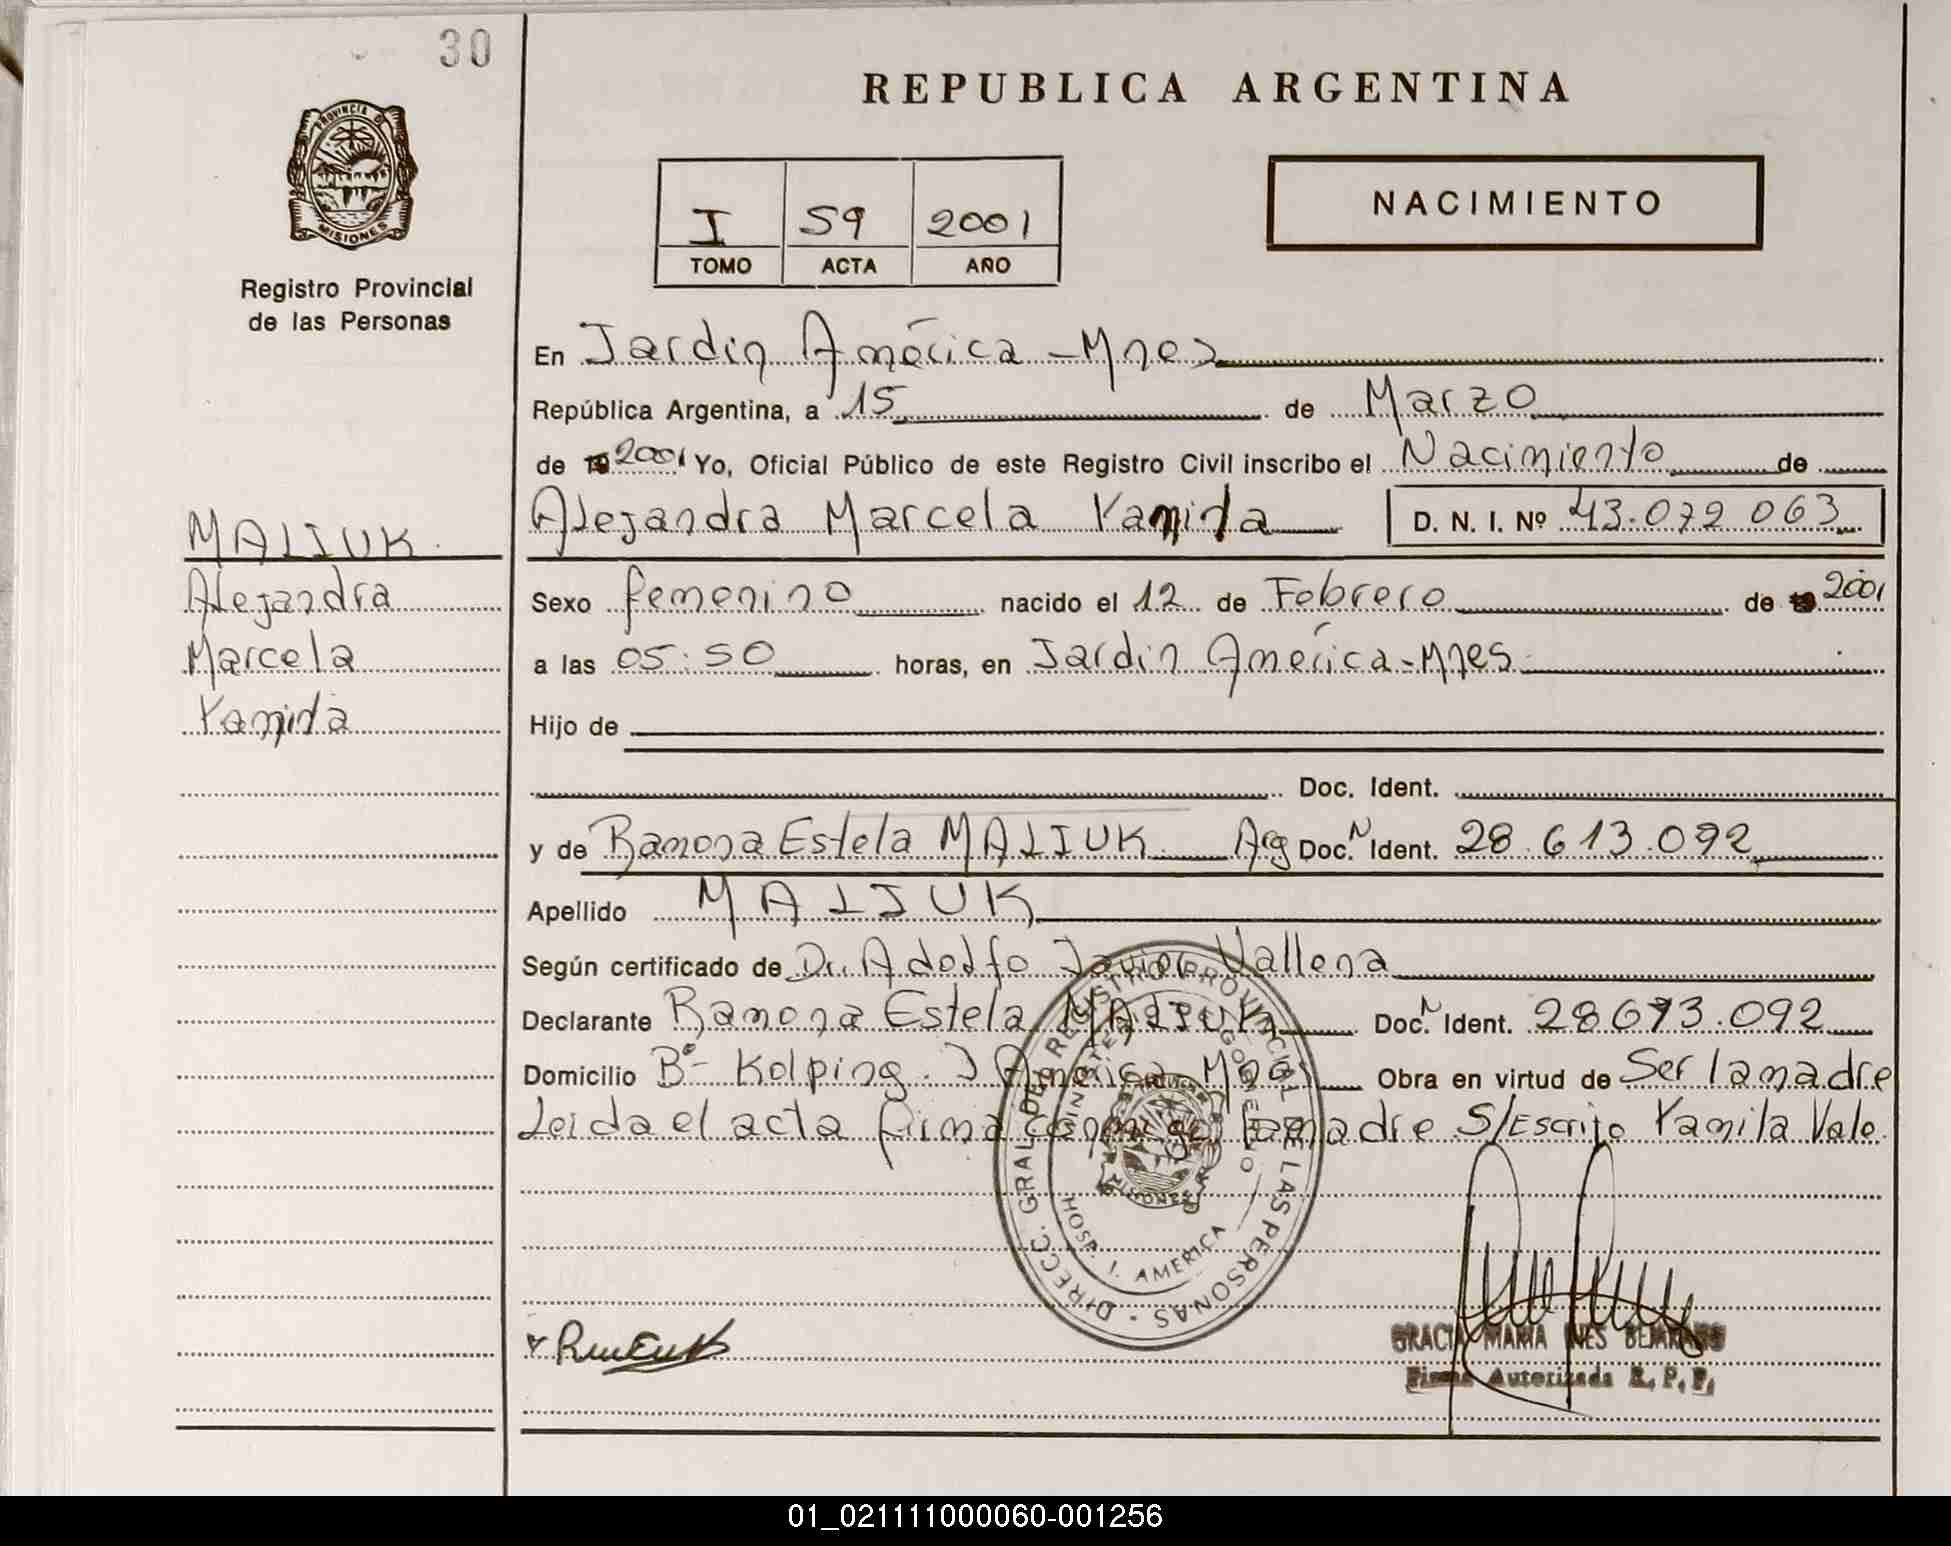 30
REPUBLICA ARGENTINA
PROVINCIA DE
MISIONES
Registro Provincial
de las Personas
I 59 2001
TOMO ACTA AÑO
NACIMIENTO
En Jardin América - Mnes
República Argentina, a 15 de Marzo
de 2001 Yo, Oficial Público de este Registro Civil inscribo el Nacimiento de
Alejandra Marcela Yamila D. N. I. Nº 43.072 063
MALIUK
Alejandra
Marcela
Yamila
Sexo femenino nacido el 12 de Febrero de 2001
a las 05:50 horas, en Jardin América - Mnes
Hijo de
Doc. Ident.
y de Ramona Estela MALIUK Arg Doc. N Ident. 28.613.092
Apellido MALIUK
Según certificado de Dr. Adolfo Javier Vallena
Declarante Ramona Estela MALIUK Doc. N Ident. 28613.092
Domicilio Bº- Kolping. J América Mnes Obra en virtud de Ser la madre
Leida el acta firma conmigo la madre S/Escrito Yamila Vale
DIRECC. GRAL. DEL REGISTRO PROVINCIAL DE LAS PERSONAS
HOSP. J. AMERICA
MISIONES
GRACIA MARIA INES
Firma Autorizada R. P. P.
01_021111000060-001256